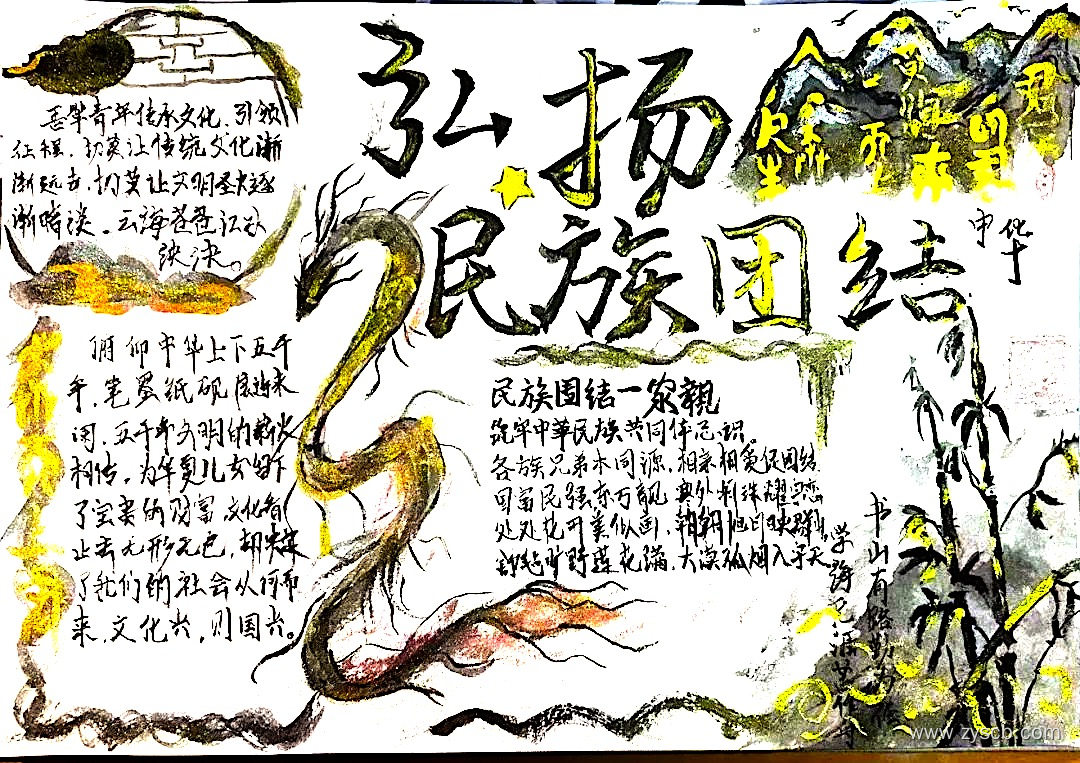 弘扬
民族团结
中华
吾辈青年传承文化、引领
征程,切莫让传统文化渐
渐远去,切莫让文明圣火逐
渐暗淡。云海苍苍江水
泱泱。
俯仰中华上下五千
年,笔墨纸砚
五千年文明的薪火
相传,为华夏儿女留下
了宝贵的财富,文化看
止去无形无色,却决定
了我们的社会从何而
来,文化兴,则国兴。
民族团结一家亲
筑牢中华民族共同体意识。
各族兄弟本同源,相亲相爱促团结
国富民强东方靓
处处花开美似画,朝朝旭日映群山
大漠孤烟入宇天
书山有路勤为径
学海无涯苦作舟
www.zyscb.com